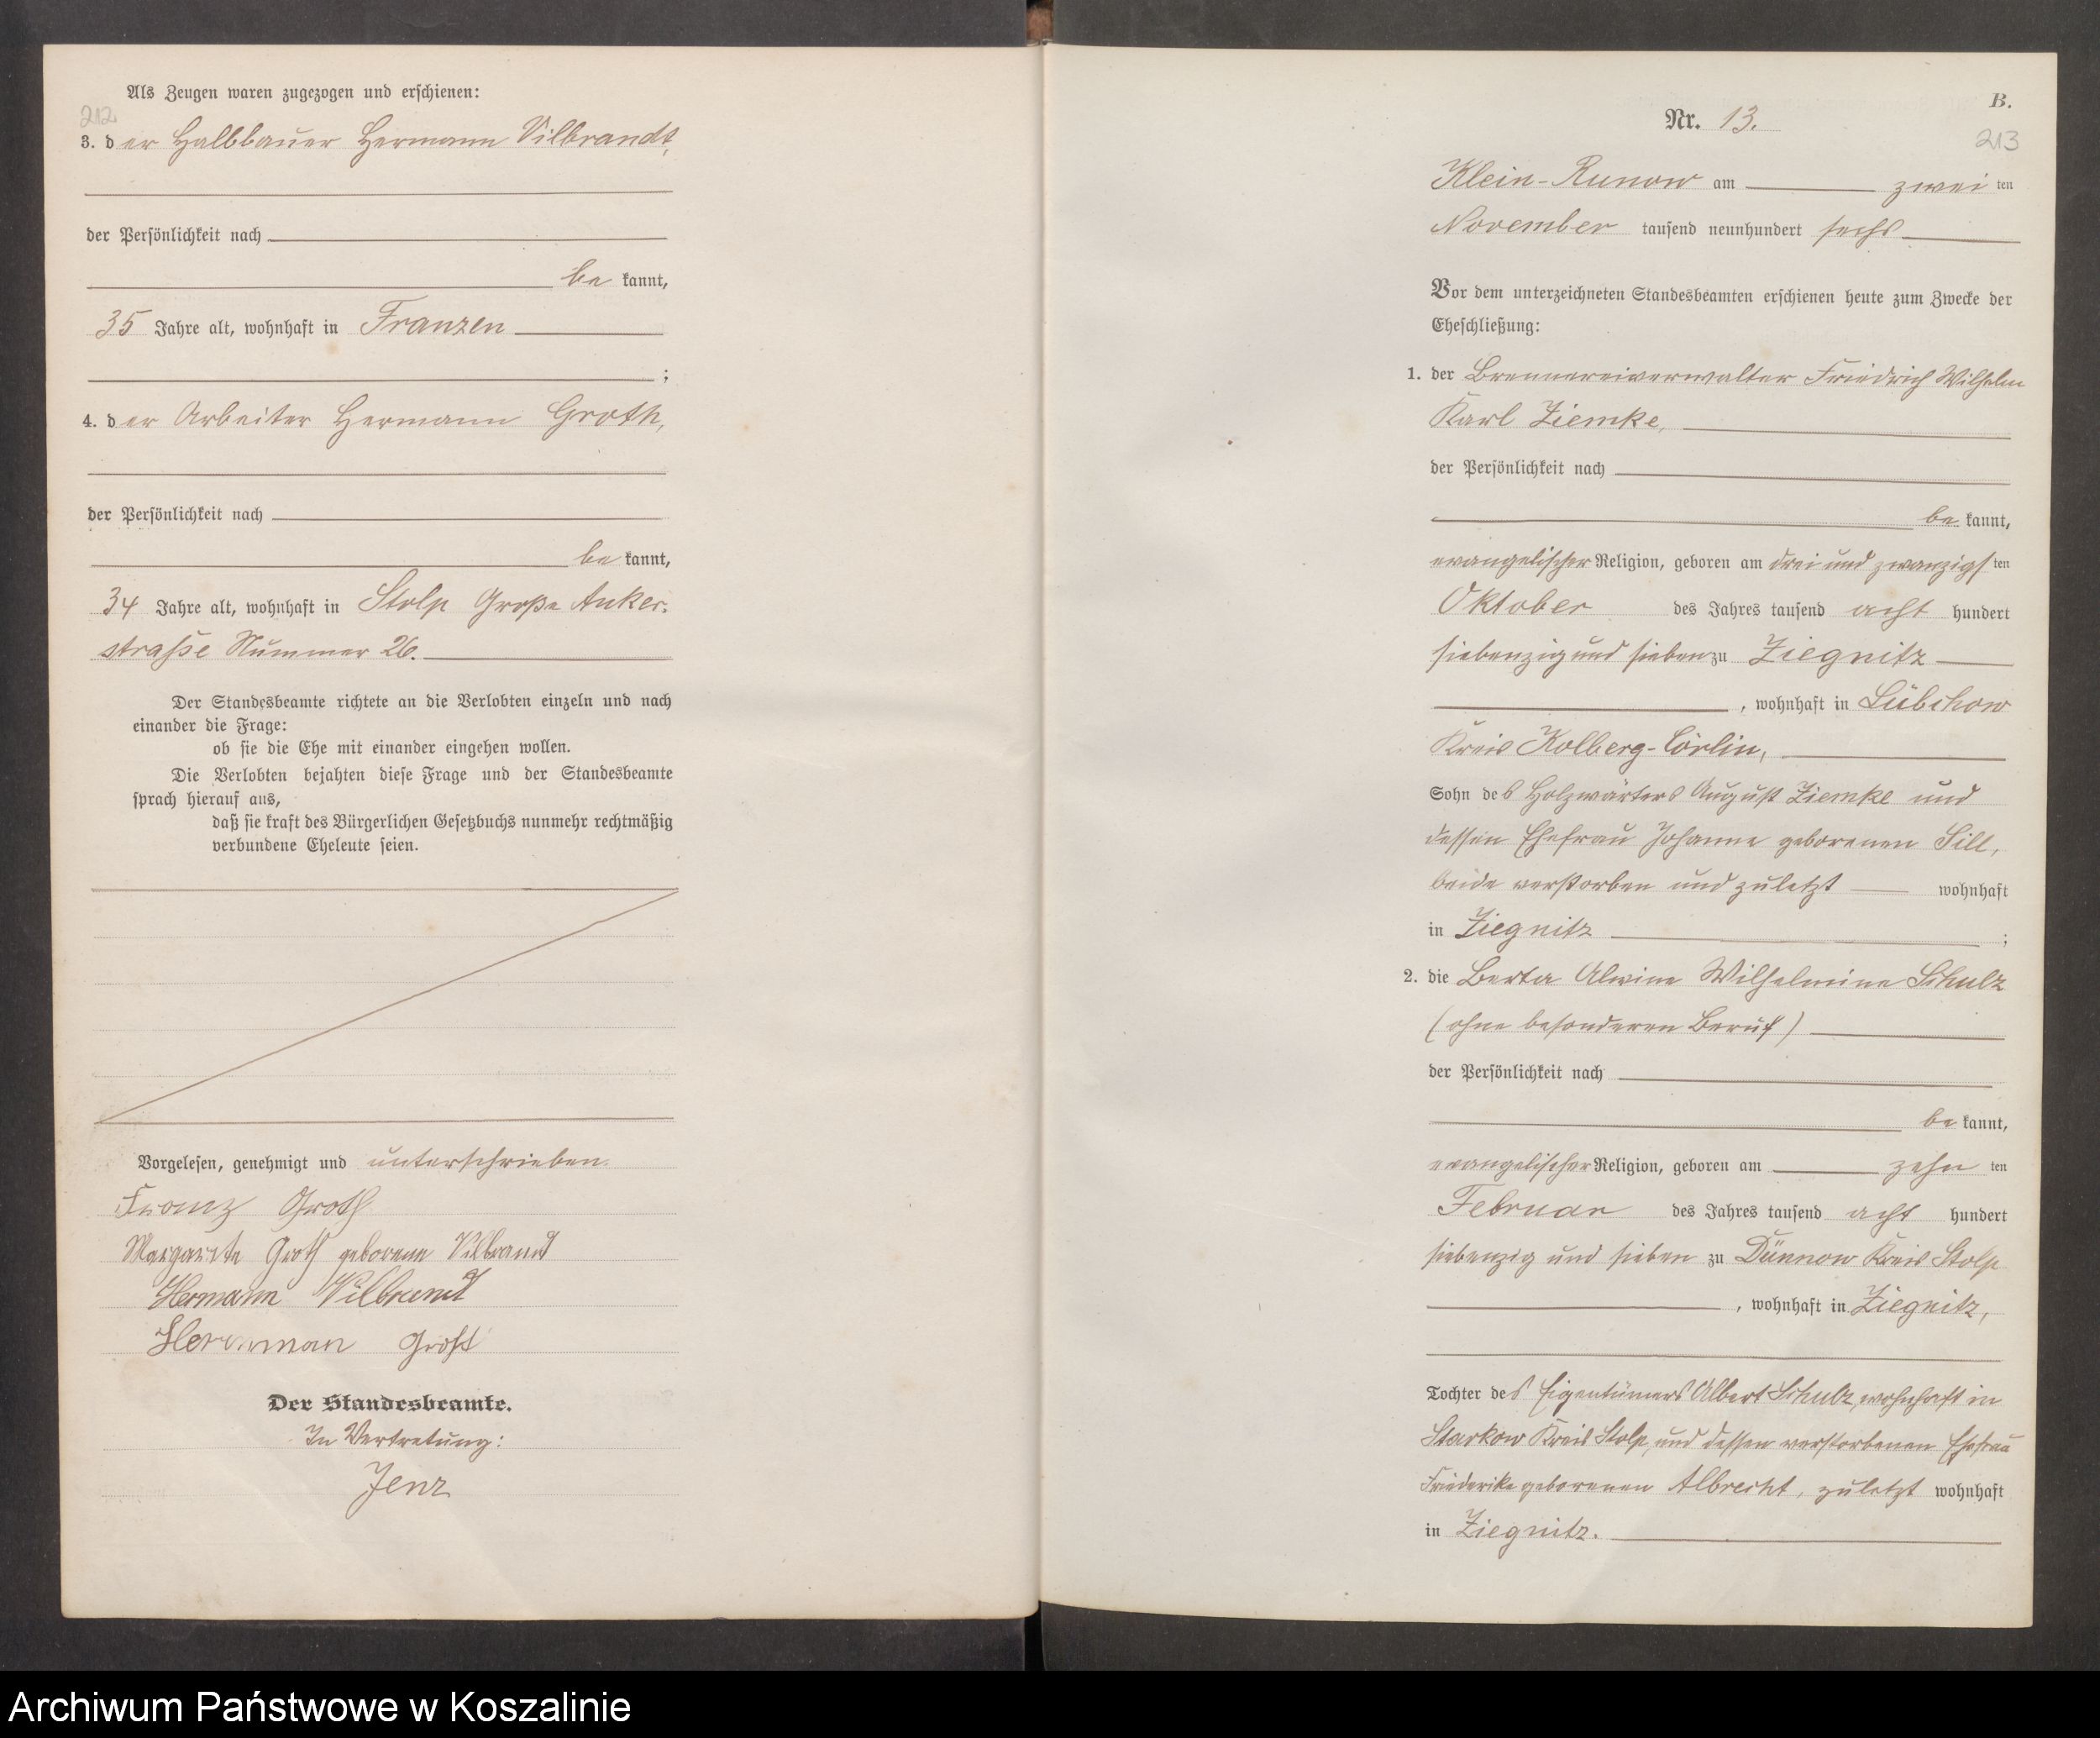 Als Zeugen waren zugezogen und erschienen:
212
3. der Halbbauer Hermann Vilbrandt,
der Persönlichkeit nach
be kannt,
35 Jahre alt, wohnhaft in Franzen
;
4. der Arbeiter Hermann Groth,
der Persönlichkeit nach
be kannt,
34 Jahre alt, wohnhaft in Stolp Große Anker-
straße Nummer 26.
Der Standesbeamte richtete an die Verlobten einzeln und nach
einander die Frage:
ob sie die Ehe mit einander eingehen wollen.
Die Verlobten bejahten diese Frage und der Standesbeamte
sprach hierauf aus,
daß sie kraft des Bürgerlichen Gesetzbuchs nunmehr rechtmäßig
verbundene Eheleute seien.
Vorgelesen, genehmigt und unterschrieben.
Franz Groth
Margarete Groth geborene Vilbrandt
Hermann Vilbrandt
Herrman Groht
Der Standesbeamte.
In Vertretung:
Jenz
B.
Nr. 13.
213
Klein-Runow am zwei ten
November tausend neunhundert sechs
Vor dem unterzeichneten Standesbeamten erschienen heute zum Zwecke der
Eheschließung:
1. der Brennereiverwalter Friedrich Wilhelm
Karl Ziemke,
der Persönlichkeit nach
be kannt,
evangelischer Religion, geboren am drei und zwanzigsten
Oktober des Jahres tausend acht hundert
siebenzig und sieben zu Ziegnitz
, wohnhaft in Lübchow
Kreis Kolberg-Cörlin,
Sohn des Holzwärters August Ziemke und
dessen Ehefrau Johanne geborenen Sill,
beide verstorben und zuletzt wohnhaft
in Ziegnitz ;
2. die Berta Alwine Wilhelmine Schulz
(ohne besonderen Beruf)
der Persönlichkeit nach
be kannt,
evangelischer Religion, geboren am zehn ten
Februar des Jahres tausend acht hundert
siebenzig und sieben zu Dünnow Kreis Stolp
, wohnhaft in Ziegnitz,
Tochter des Eigentümers Albert Schulz, wohnhaft in
Starkow Kreis Stolp, und dessen verstorbenen Ehefrau
Friederike geborenen Albrecht, zuletzt wohnhaft
in Ziegnitz.
Archiwum Państwowe w Koszalinie